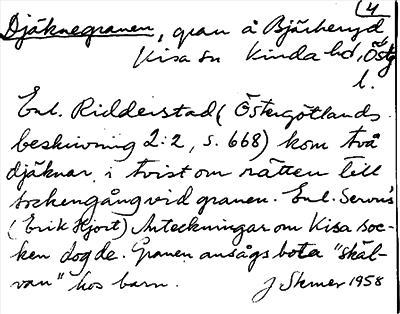 (4
Djäknegranen, gran å Bjärkeryd
Kisa sn Kinda hd, Östg
l.
Enl. Ridderstad (Östergötlands
beskrivning 2:2, s. 668) kom två
djäknar i tvist om rätten till
sockengång vid granen. Enl. Servus
(Erik Hjort) Anteckningar om Kisa soc-
ken dog de. Granen ansågs bota "skäl-
van" hos barn. J Skmer 1958